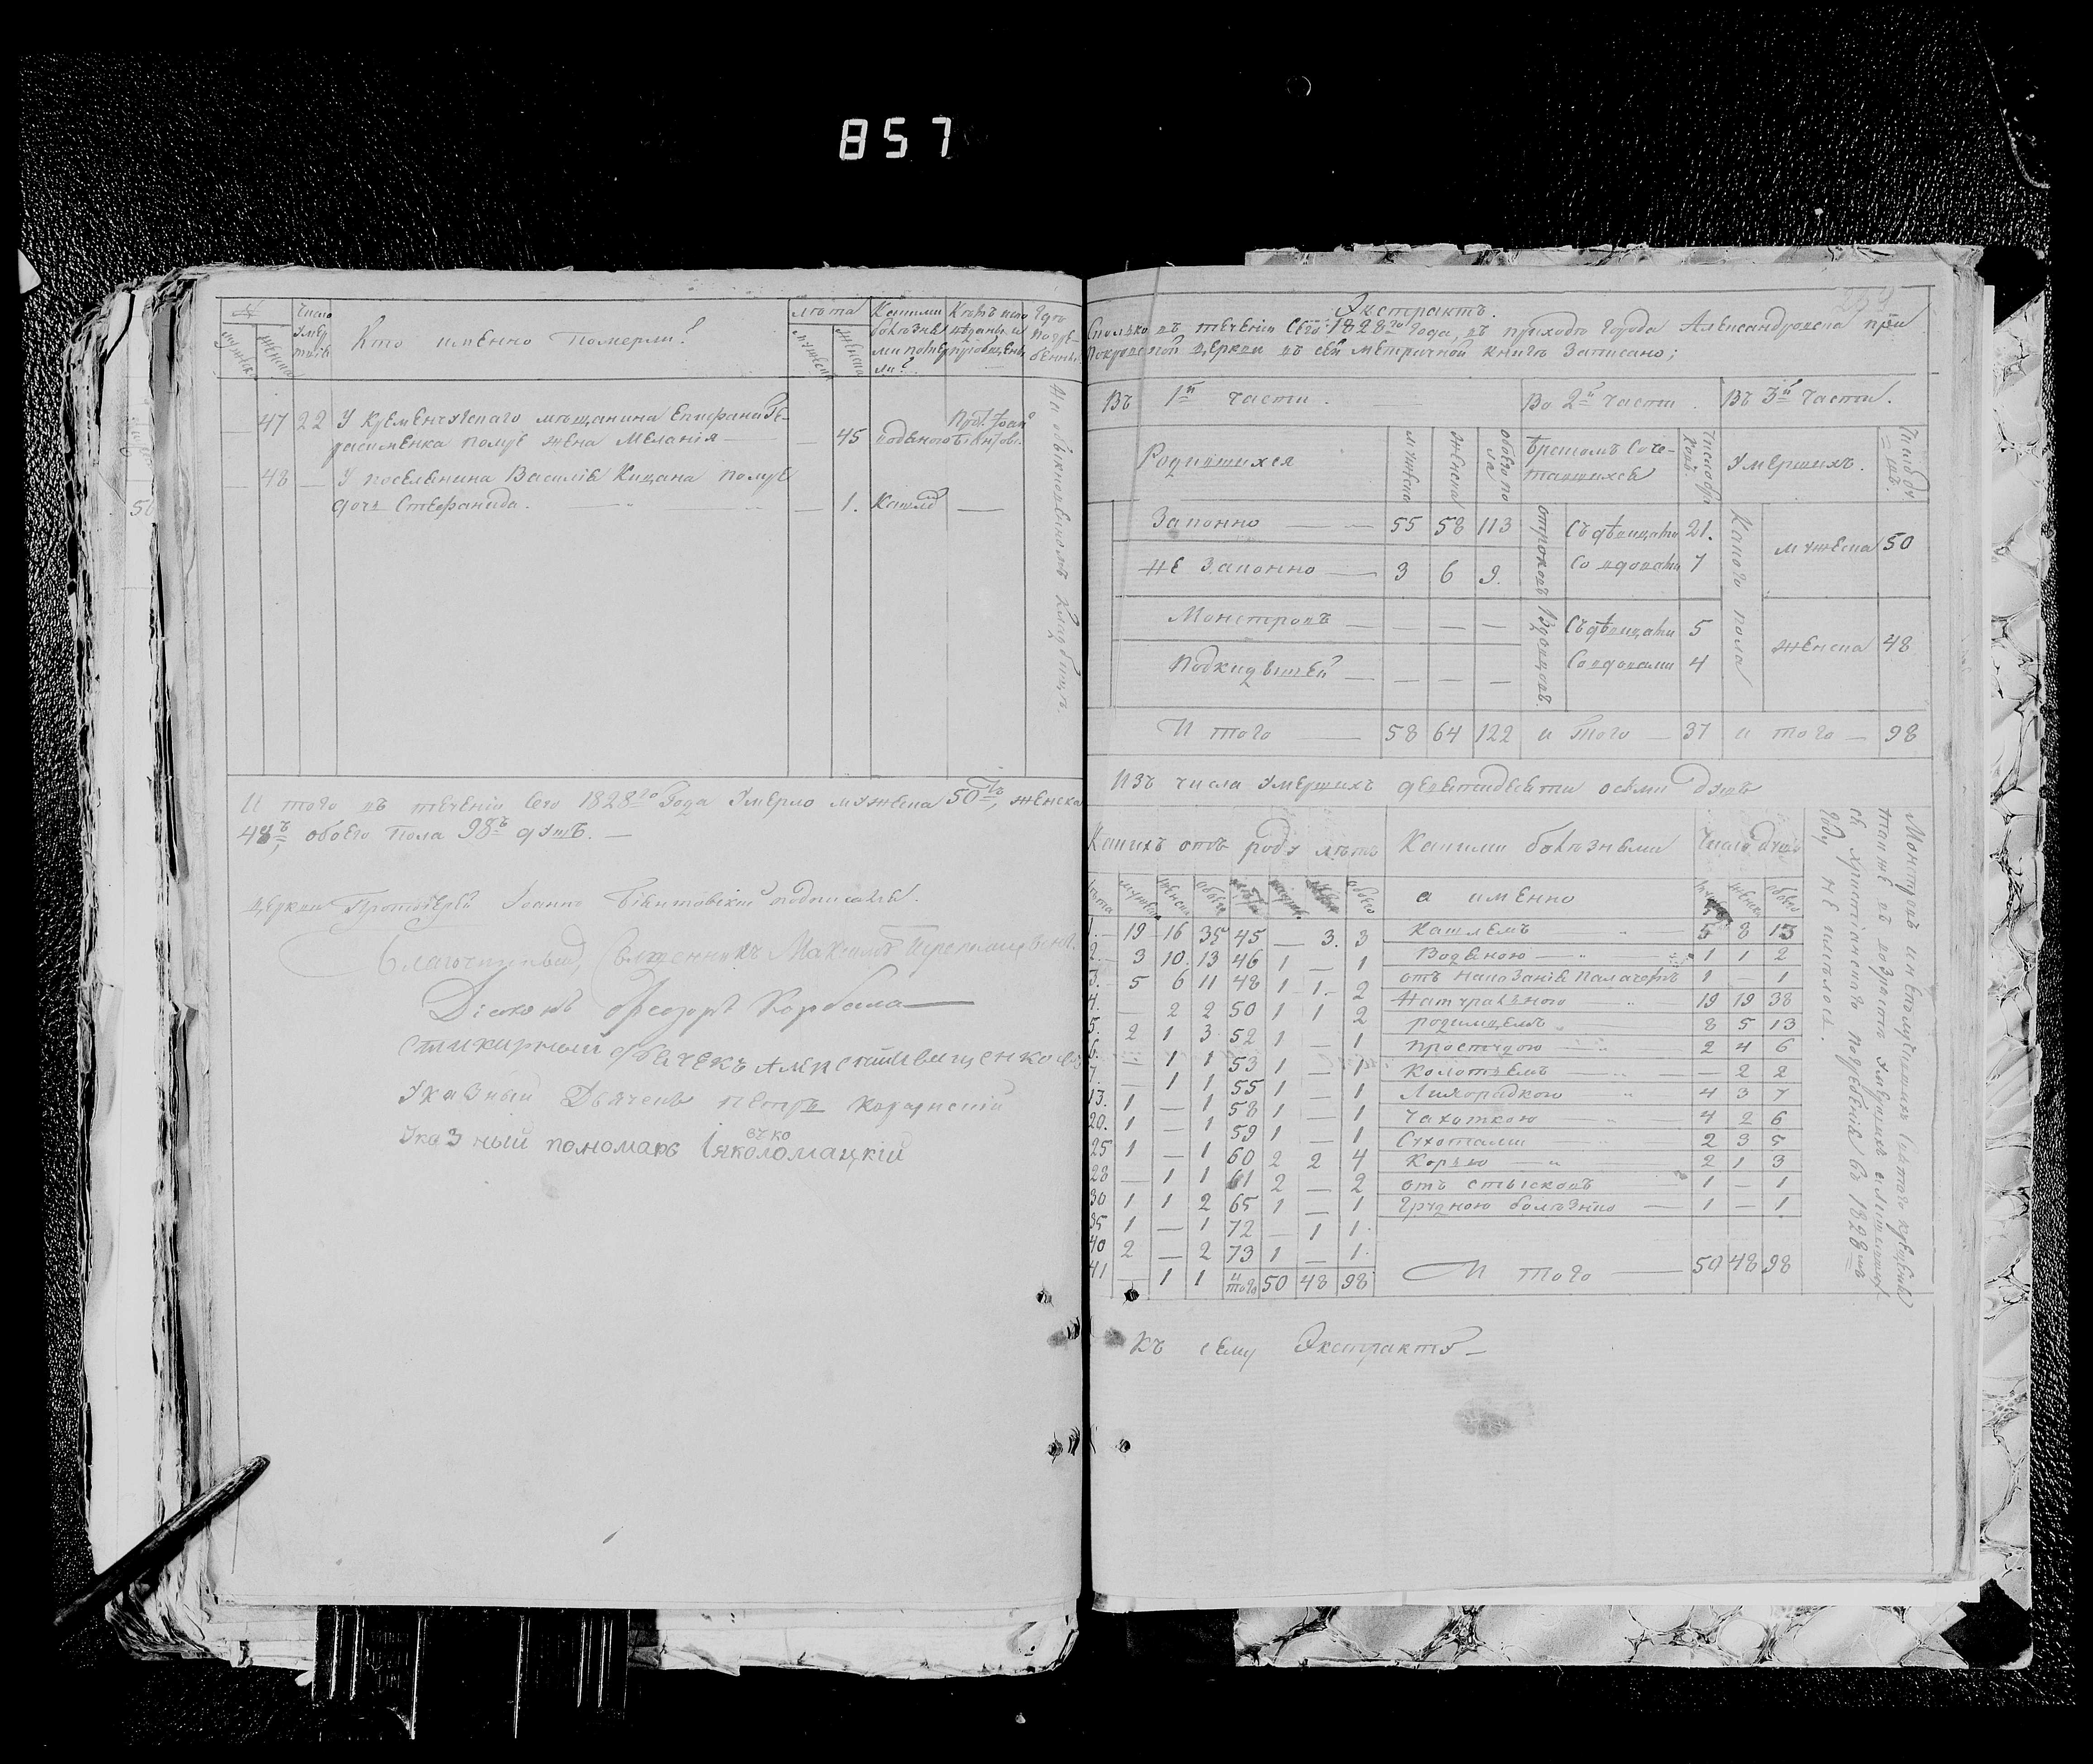 857
№
мужеска
женска
Число
Умер
шихъ
Кто именно Померли?
лѣта
мужеска
женска
Какими
болѣзнь
ми помер
ли?
Кѣмъ испо
вѣданы и
пріобщены
Гдѣ
погре
бены
47 22 У Кременчугскаго мѣщанина Епифана Ге-
расименка помре жена Меланія — 45 водяною Прот. Іоан
48 — У поселянина Василія Кицана помре
дочь Стефанида. — 1. Кашлѣ —
На обыкновенномъ кладбищѣ.
И того въ теченіи сего 1828го Года Умерло мужеска 50тъ, женска
48ъ, обоего пола 98ъ душъ. —
церкви Протоіерей Іоаннъ подписался.
Благочинный, Священникъ Максимъ
Діаконъ Ѳеодоръ Корбела
Стихарный Дьячекъ
Указный Дьячекъ Петръ
Указный пономарь
50
Экстрактъ.
Сколько въ теченіи Сего 1828го Года, въ приходѣ Города Александровска при
Покровской церкви въ сей метричной книгѣ Записано;
Въ 1й части.
Во 2й части
Въ 3й части.
Родившихся
мужеска
женска
обоего по
ла
бракомъ Соче-
тавшихся
Число бра
ковъ.
Умершихъ.
Число ду
шъ.
Законно — 55 58 113
Не Законно — 3 6 9.
Монстровъ — — — —
Подкидышей — — — —
отроковъ
Съ дѣвицами 21.
Со вдовами 7
Вдовцовъ
Съ дѣвицами 5
Со вдовами 4
Какого пола
мужеска 50
женска 48
И того — 58 64 122 и того — 37 и того — 98
Изъ числа Умершихъ девятидесяти осьми Душъ
Какихъ отъ роду лѣтъ
Какими болѣзньми
Число душъ
лѣта мужеска женска обоего
а именно
мужеска женска обоего
1. 19 16 35 45 — 3. 3
2. 3 10. 13 46 1 — 1
3. 5 6 11 48 1 1. 2
4. — 2 2 50 1 1 2
5. 2 1 3 52 1 — 1
6. — 1 1 53 1 — 1
7. — 1 1 55 1 — 1
13. 1 — 1 58 1 — 1
20. 1 — 1 59 1 — 1
25 1 — 1 60 2 2 4
28 — 1 1 61 2 — 2
30 1 1 2 65 1 — 1
35 1 — 1 72 — 1 1.
40 2 — 2 73 1 — 1.
41 — 1 1 и того 50 48 98
Кашлемъ 5 8 13
Водяною 1 1 2
отъ наказанія Палачемъ 1 — 1
Натуральною 19 19 38
родимцемъ 8 5 13
простудою 2 4 6
Колотьемъ — 2 2
Лихорадкою 4 3 7
Чахоткою 4 2 6
Сухотами 2 3 5
Корью 2 1 3
отъ стысковъ 1 — 1
Грудною болѣзнію 1 — 1
И того — 50 48 98
Монстровъ и неполучившихъ Святаго крещенія
также въ возрастѣ умершихъ
Христіанскаго погребенія въ 1828мъ
Году не имѣлось.
Къ сему Экстракту —